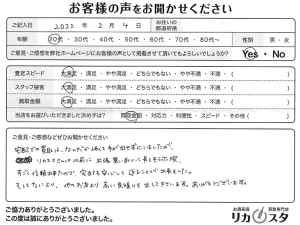 お客様の声をお聞かせください
ご記入日 2022 年 2 月 4 日 お住いの都道府県
年齢 20代・30代・40代・50代・60代・70代・80代～ 性別 男・女
ご意見・ご感想を弊社ホームページにお客様の声として掲載させて頂いてもよろしいでしょうか? Yes・No
査定スピード 大満足・満足・やや満足・どちらでもない・やや不満・不満・( )
スタッフ接客 大満足・満足・やや満足・どちらでもない・やや不満・不満・( )
買取金額 大満足・満足・やや満足・どちらでもない・やや不満・不満・( )
当店をお選びいただきました決め手は? 買取金額・対応力・利便性・スピード・その他( )
ご意見・ご感想などぜひお聞かせください
宅配での買取は、なんだか怖くて手が出せずにいましたので、
リカスタさんは以前に
すごく信頼出来たので、宅配も安心して送ることが出来ました。
そしてなにより、やはり高い見積りを出して下さいます。ありがとうございます。
ご協力ありがとうございました。
この度は誠にありがとうございました。
お酒高価買取専門店
リカスタ